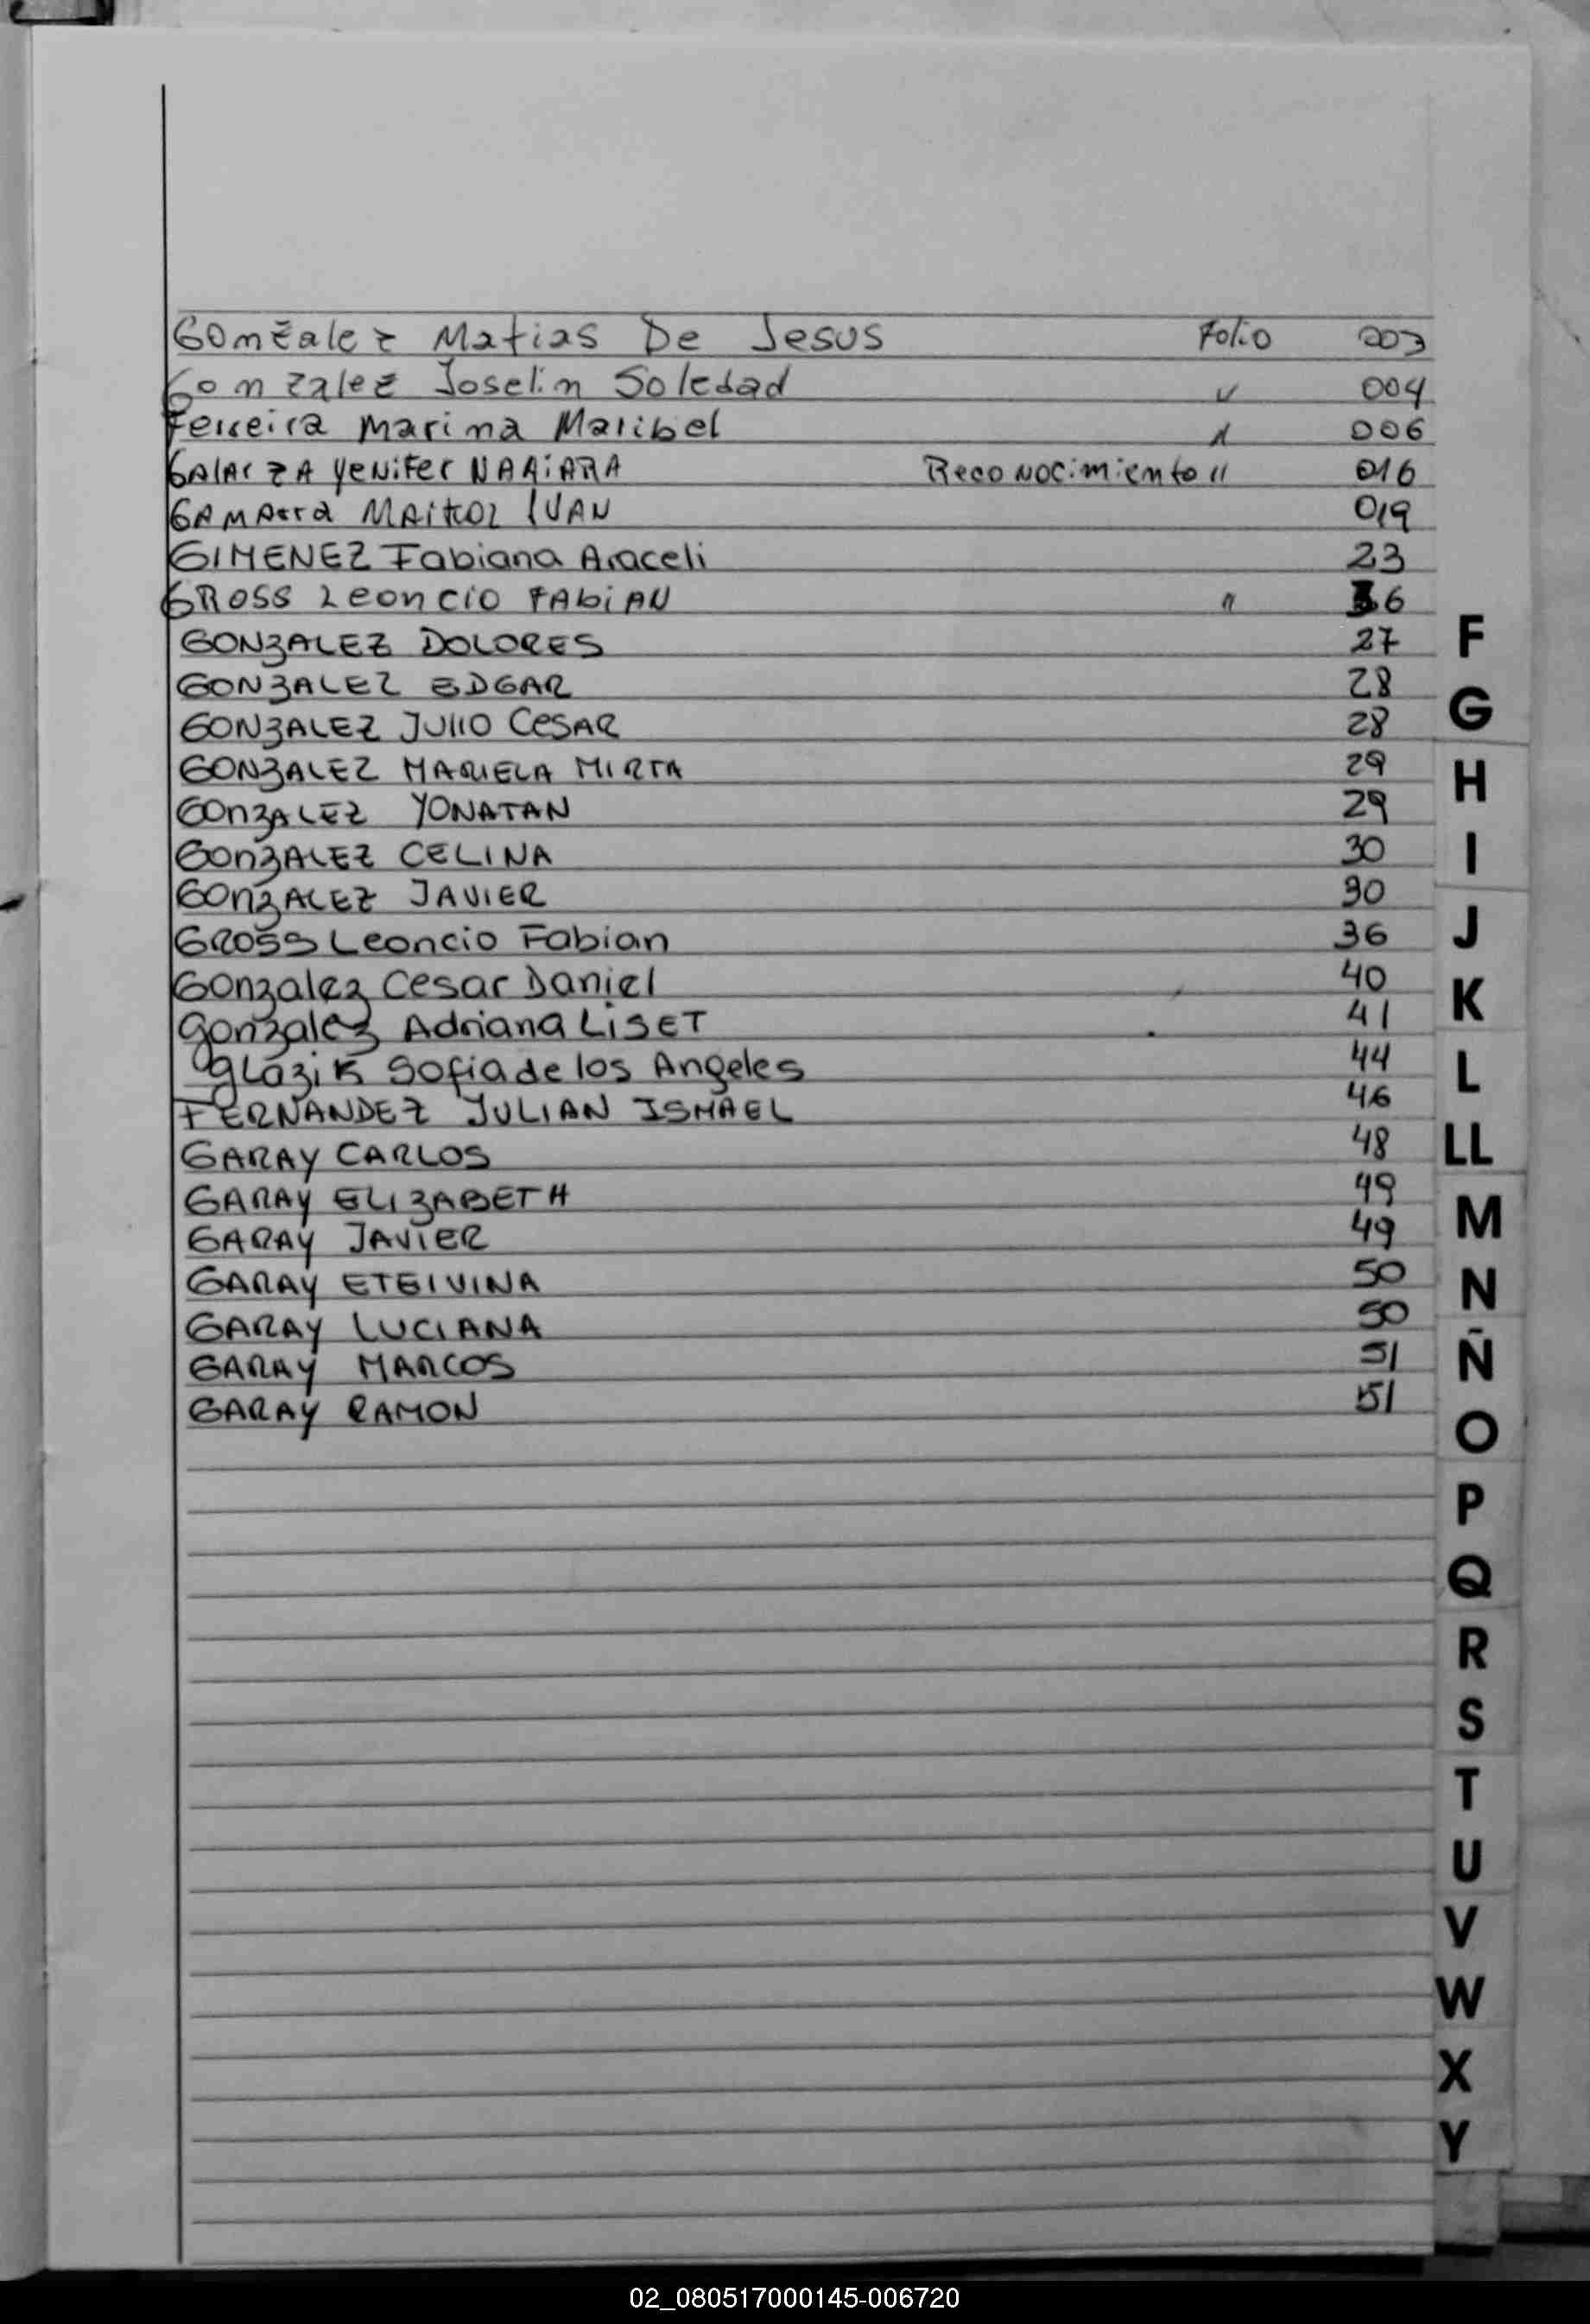 Gonzalez Matias De Jesus Folio 003
Gonzalez Joselin Soledad " 004
Ferreira Marina Maribel " 006
GAlArzA YeNiFer NAAiARA Reconocimiento " 016
GAMArra MAikol IVAN 019
GIMENEZ Fabiana Araceli 23
GROSS Leoncio FAbiAN " 36
GONZALEZ DOLORES 27
GONZALEZ EDGAR 28
GONZALEZ JULIO CESAR 28
GONZALEZ MARIELA MIRTA 29
GONZALEZ YONATAN 29
GONZALEZ CELINA 30
GONZALEZ JAVIER 30
GROSS Leoncio Fabian 36
Gonzalez Cesar Daniel 40
Gonzalez Adriana LISET 41
Glazik Sofia de los Angeles 44
FERNANDEZ JULIAN ISMAEL 46
GARAY CARLOS 48
GARAY ELIZABETH 49
GARAY JAVIER 49
GARAY ETELVINA 50
GARAY LUCIANA 50
GARAY MARCOS 51
GARAY RAMON 51
F
G
H
I
J
K
L
LL
M
N
Ñ
O
P
Q
R
S
T
U
V
W
X
Y
02_080517000145-006720